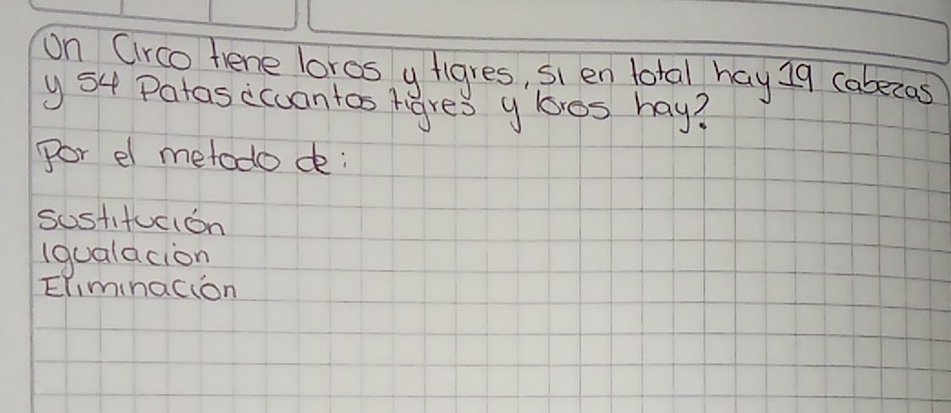 Un Circo tiene loros y tigres, si en total hay 19 cabezas
y 54 Patas ¿cuantos tigres y loros hay?
Por el metodo de:
Sustitución
Igualacion
Eliminación